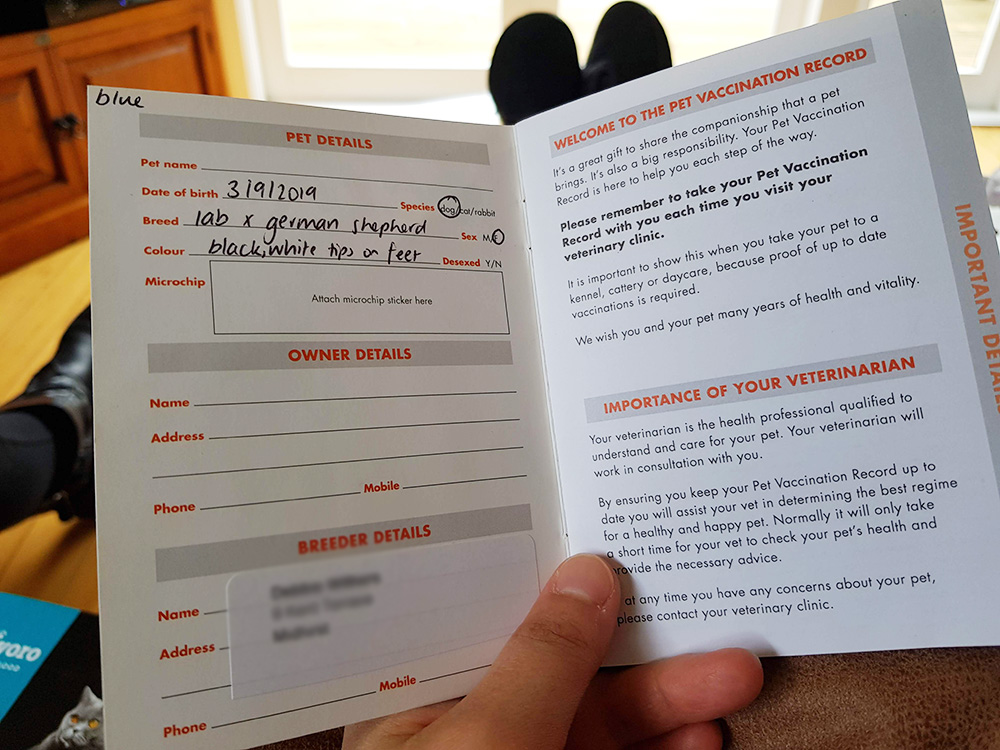 blue
PET DETAILS
Pet name
Date of birth 3/9/2019 Species dog/cat/rabbit
Breed lab x german shepherd Sex M/F
Colour black, white tips on feet Desexed Y/N
Microchip
Attach microchip sticker here
OWNER DETAILS
Name
Address
Phone Mobile
BREEDER DETAILS
Name
Address
Mobile
Phone
WELCOME TO THE PET VACCINATION RECORD
It's a great gift to share the companionship that a pet
brings. It's also a big responsibility. Your Pet Vaccination
Record is here to help you each step of the way.
Please remember to take your Pet Vaccination
Record with you each time you visit your
veterinary clinic.
It is important to show this when you take your pet to a
kennel, cattery or daycare, because proof of up to date
vaccinations is required.
We wish you and your pet many years of health and vitality.
IMPORTANCE OF YOUR VETERINARIAN
Your veterinarian is the health professional qualified to
understand and care for your pet. Your veterinarian will
work in consultation with you.
By ensuring you keep your Pet Vaccination Record up to
date you will assist your vet in determining the best regime
for a healthy and happy pet. Normally it will only take
a short time for your vet to check your pet's health and
provide the necessary advice.
at any time you have any concerns about your pet,
please contact your veterinary clinic.
IMPORTANT DETAILS